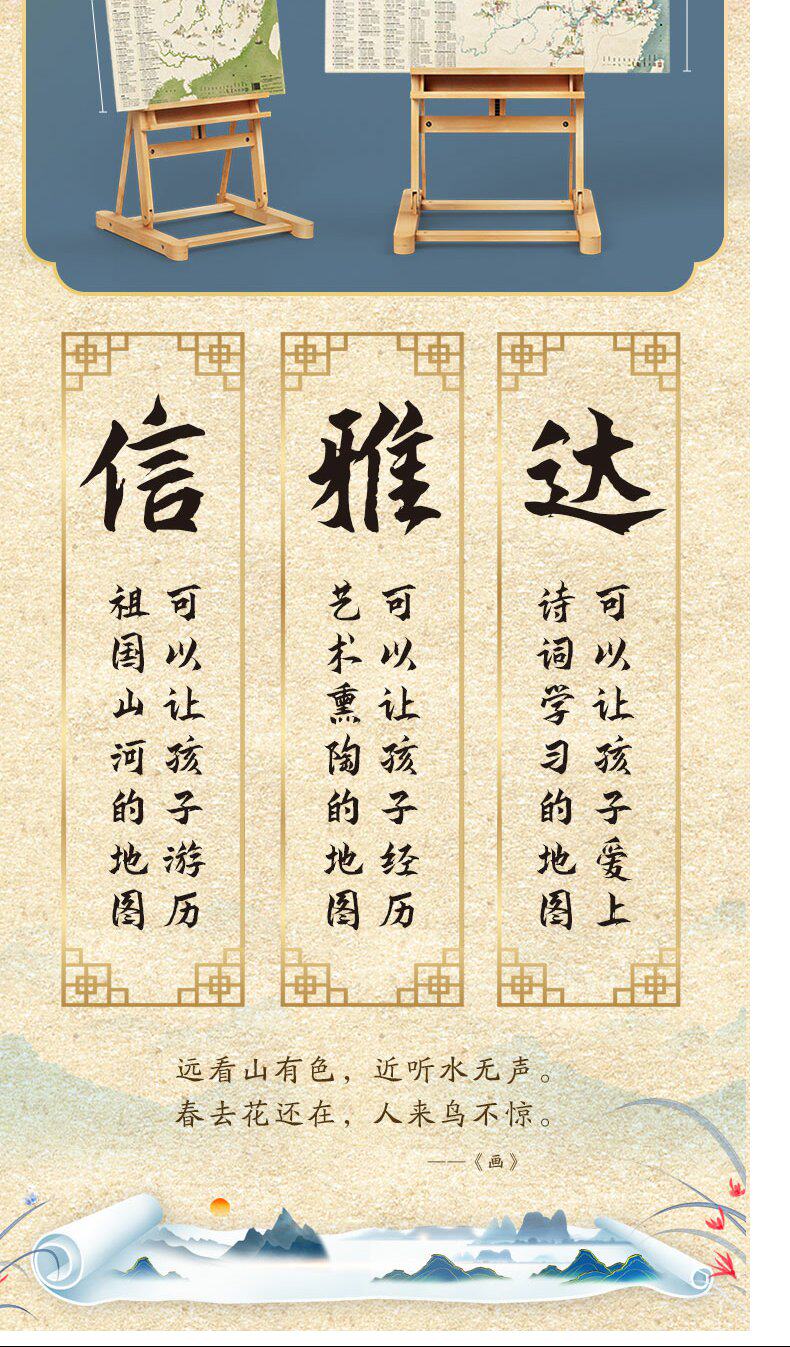 信
可以让孩子游历
祖国山河的地图
雅
可以让孩子经历
艺术熏陶的地图
达
可以让孩子爱上
诗词学习的地图
远看山有色，近听水无声。
春去花还在，人来鸟不惊。
——《画》